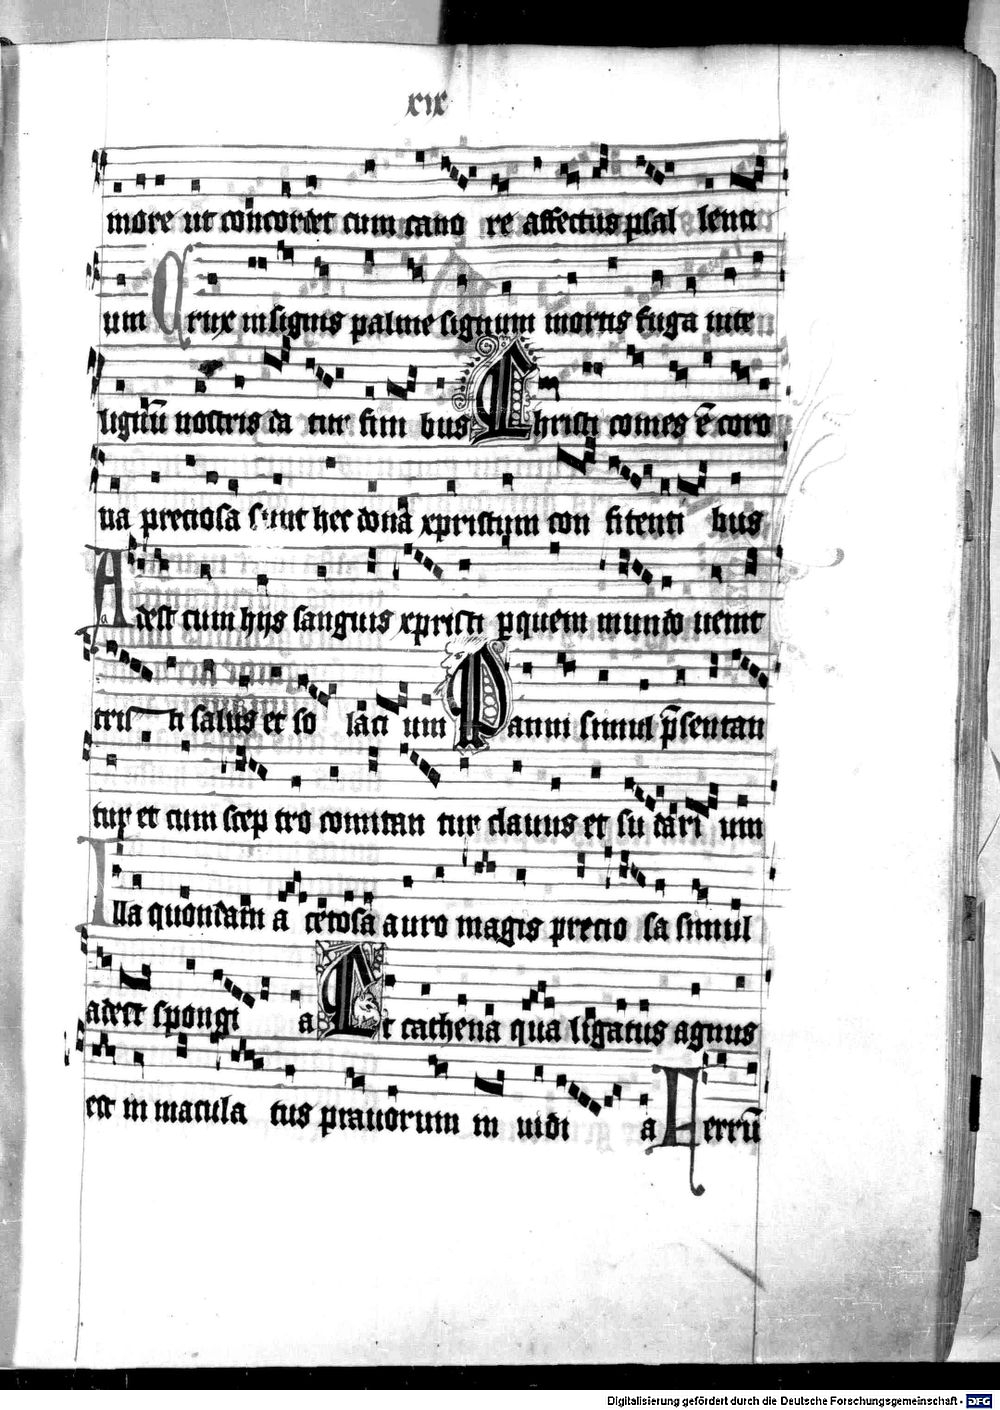 xix
more ut concordet cum cano re affectus psal lenti
um Crux insignis palme signum mortis fuga inte
lignū nostris da tur fini bus Christi comes ē coro
na preciosa sunt hec dona xpristum con fitenti bus
Adest cum hijs sanguis xpristi p quem mundo uenit
tris ti salus et so laci um Panni simul p̄sentan
tur et cum scep tro comitan tur clauus et su dari um
Illa quondam a cetosa auro magis precio sa simul
adest spongi a Et cathena qua ligatus agnus
est in macula tus prauorum in uidi a Ferrū
Digitalisierung gefördert durch die Deutsche Forschungsgemeinschaft - DFG